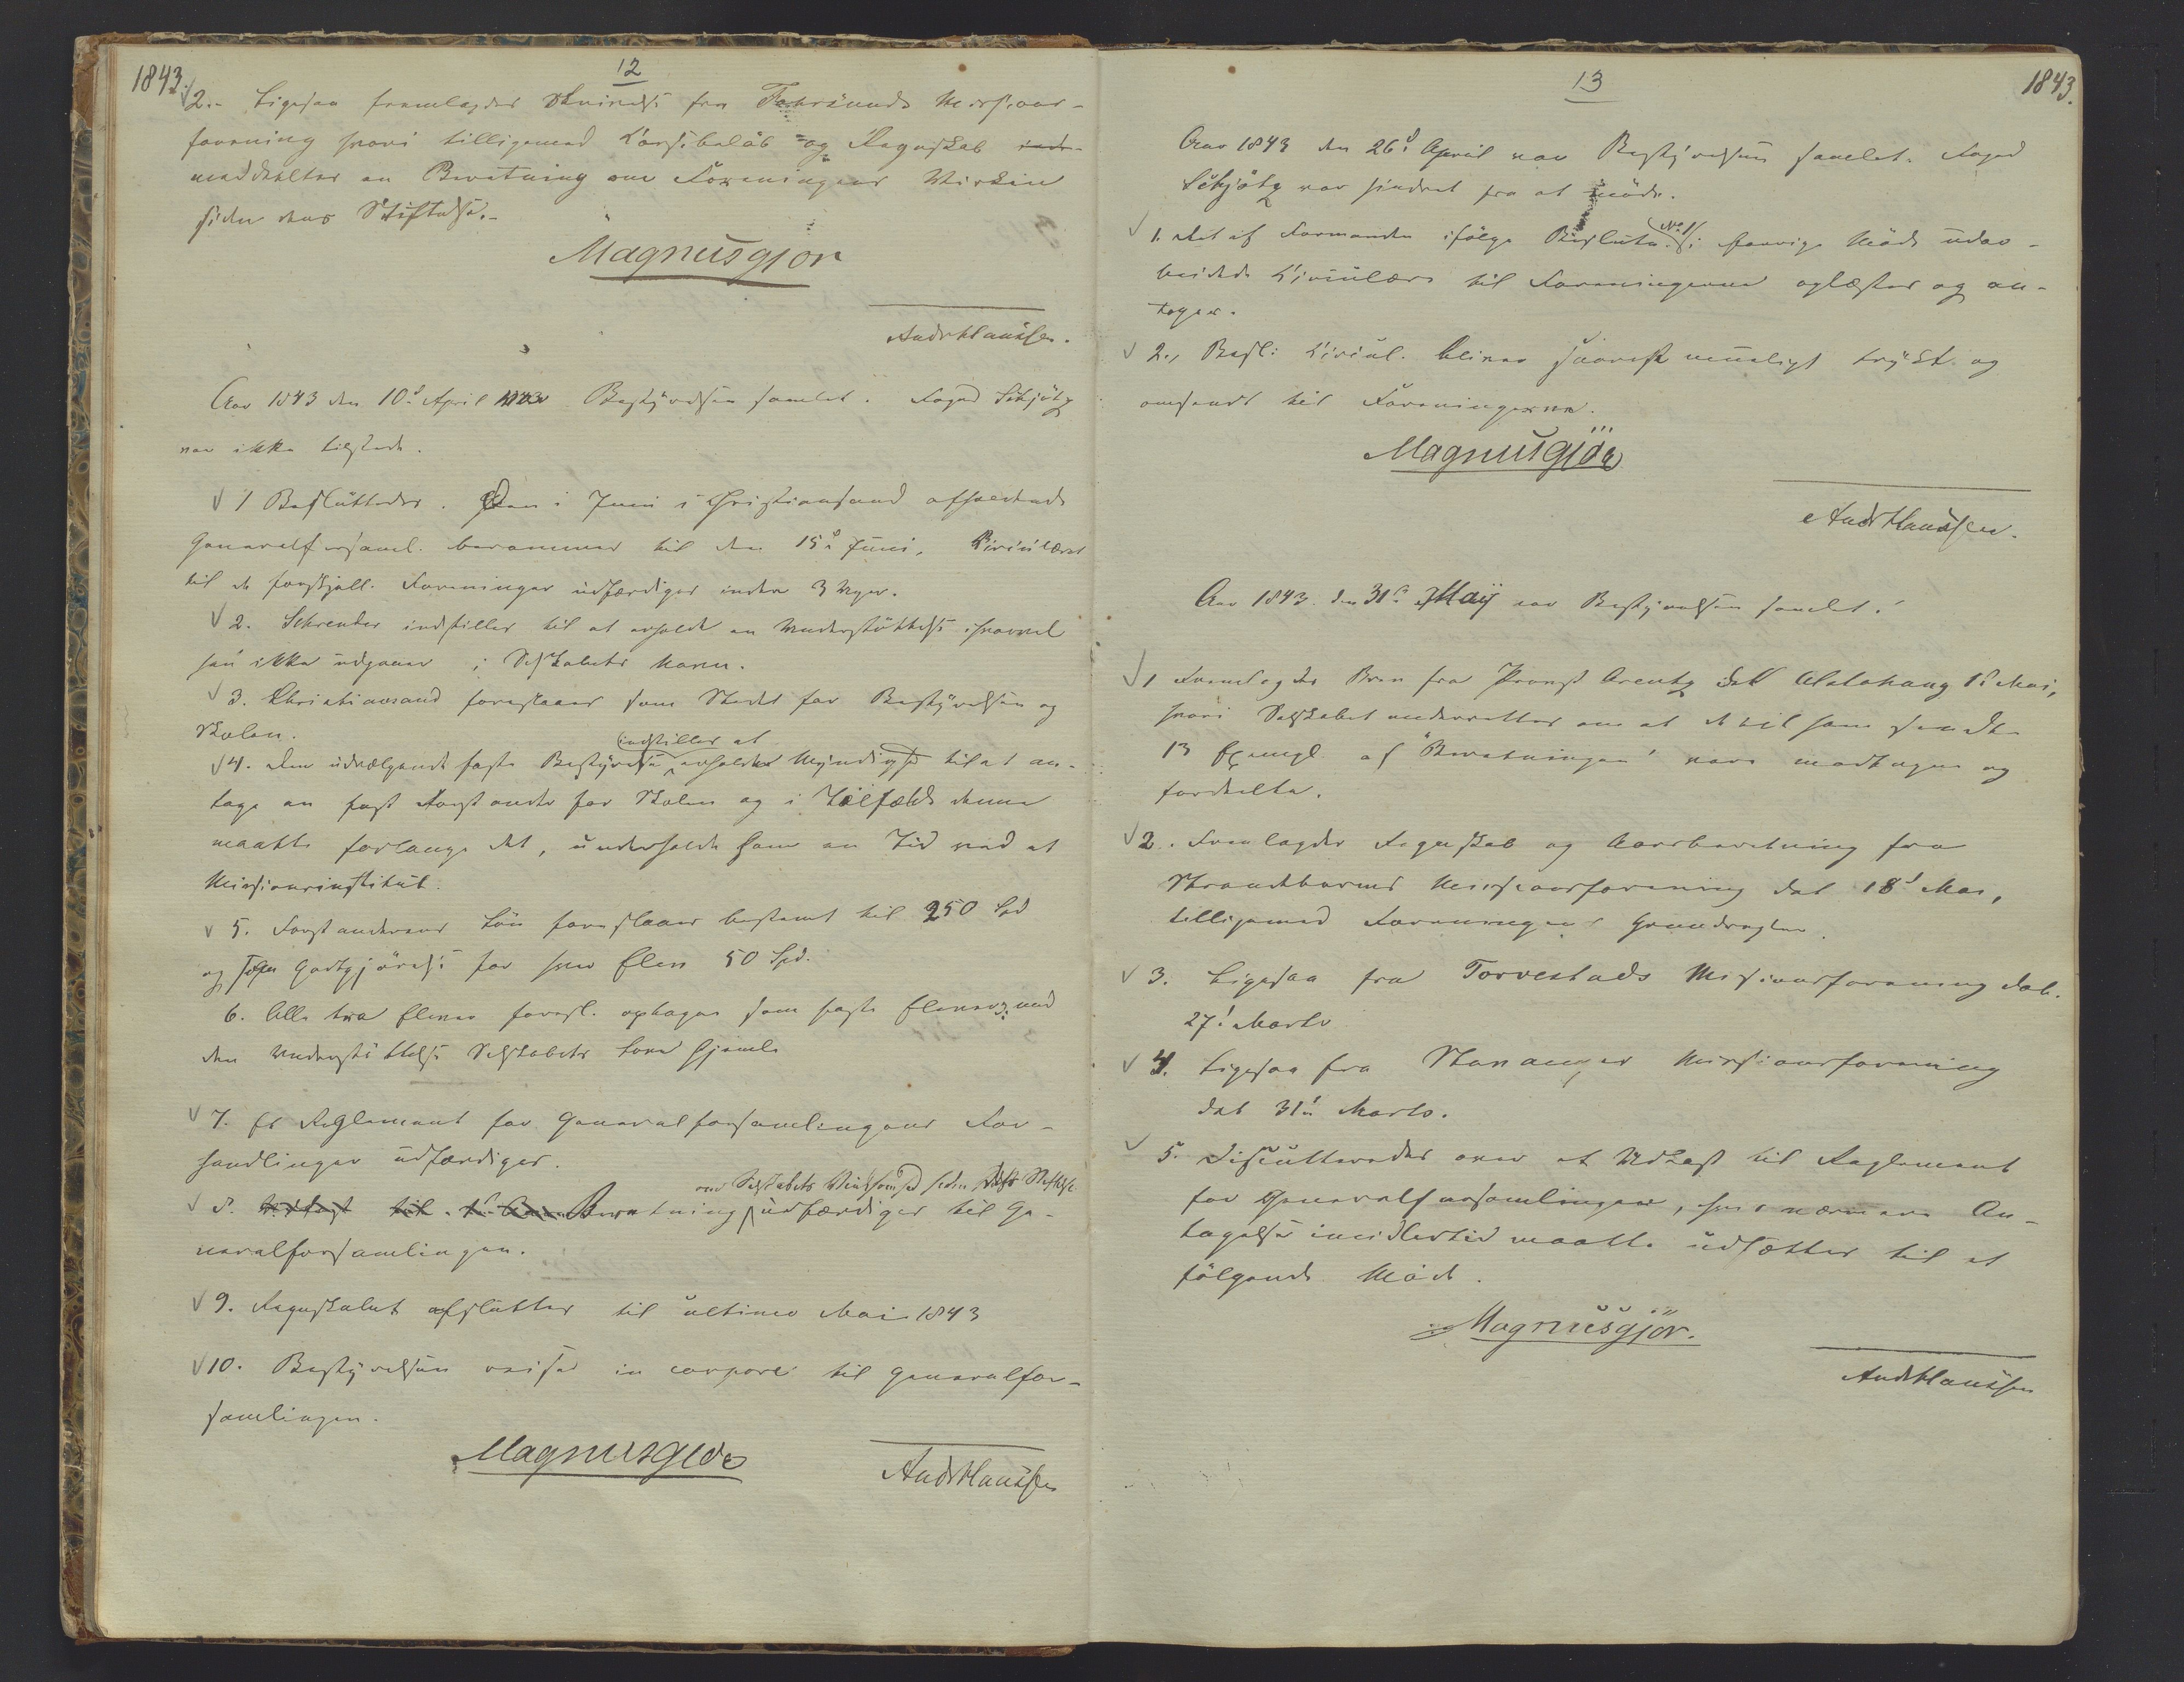 1843.
12
2.- Ligesaa fremlagdes Skrivelse fra Farsunds Mission-
forening hvori tilligemed Cassebeløb og Regnskab
meddeeltes en Beretning om Foreningens Virken
siden dens Stiftelse.-
Magnus Gjør
Andr Hanssen.
Aar 1843 den 10de April var Bestyrelsen samlet. Foged Schjøtz
var ikke tilstede.
1 Besluttedes. Den i Juni i Christiansand afholdende
Generalforsaml. berammes til den 15de Juni. Circulæret
til de forskjell. Foreninger udfærdiges inden 3 Uger.
2. Schreuder indstilles til at erholde en Understøttelse ihvorvel
han ikke udgaaer i Selskabets Navn.
3. Christiansand foreslaaes som Stedet for Bestyrelsen og
Skolen.
indstilles at
4. Den udvælgende faste Bestyrelse erholder Myndighed til at an-
tage en fast Forstander for Skolen og i Tilfælde denne
maatte forlange det, underholde ham en Tid ved et
Missionsinstitut.
5. Forstanderens Løn foreslaaes bestemt til 250 Spd
og Godtgjørelse for hver Elev 50 Spd.
6. Alle tre Elever foresl. optages som faste Elever med
den Understøttelse Selskabets Love hjemle
7. Et Reglement for Generalforsamlingens For-
handlinger udfærdiges.
om Selskabets Virksomhed siden dets Stiftelse
8. Beretning udfærdiges til Ge-
neralforsamlingen.
9. Regnskabet afsluttes til ultimo Mai 1843
10. Bestyrelsen reiser in corpore til Generalfor-
samlingen.
Magnus Gjør
Andr Hanssen
13
1843.
Aar 1843 den 26de April var Bestyrelsen samlet. Foged
Schjøtz var hindret fra at møde.
No 1
1. Det af Formanden ifølge Beslutn. i forrige Møde udar-
beidede Circulære til Foreningerne oplæstes og an-
toges.
2., Besl: Circul. bliver snarest mueligt trykt og
omsendt til Foreningerne.
Magnus Gjør
Andr Hanssen.
Aar 1843. den 31te May var Bestyrelsen samlet.
1 Fremlagdes Brev fra Provst Arentz dat Alstahaug 1ste Mai,
hvori Selskabet underrettes om at de til ham sendte
13 Exempl. af "Beretningen" vare modtagne og
fordeelte.
2. Fremlagdes Regnskab og Aarsberetning fra
Strandebarms Missionsforening dat 18de Mai,
tilligemed Foreningens Grundregler.
3. Ligesaa fra Torvestads Missionsforening dat.
27de Marts
4. Ligesaa fra Stavanger Missionsforening
dat 31te Marts.
5. Discutteredes over et Udkast til Reglement
for Generalforsamlingen, hvis nærmere An-
tagelse imidlertid maatte udsættes til et
følgende Møde.
Magnus Gjør.
Andr Hanssen